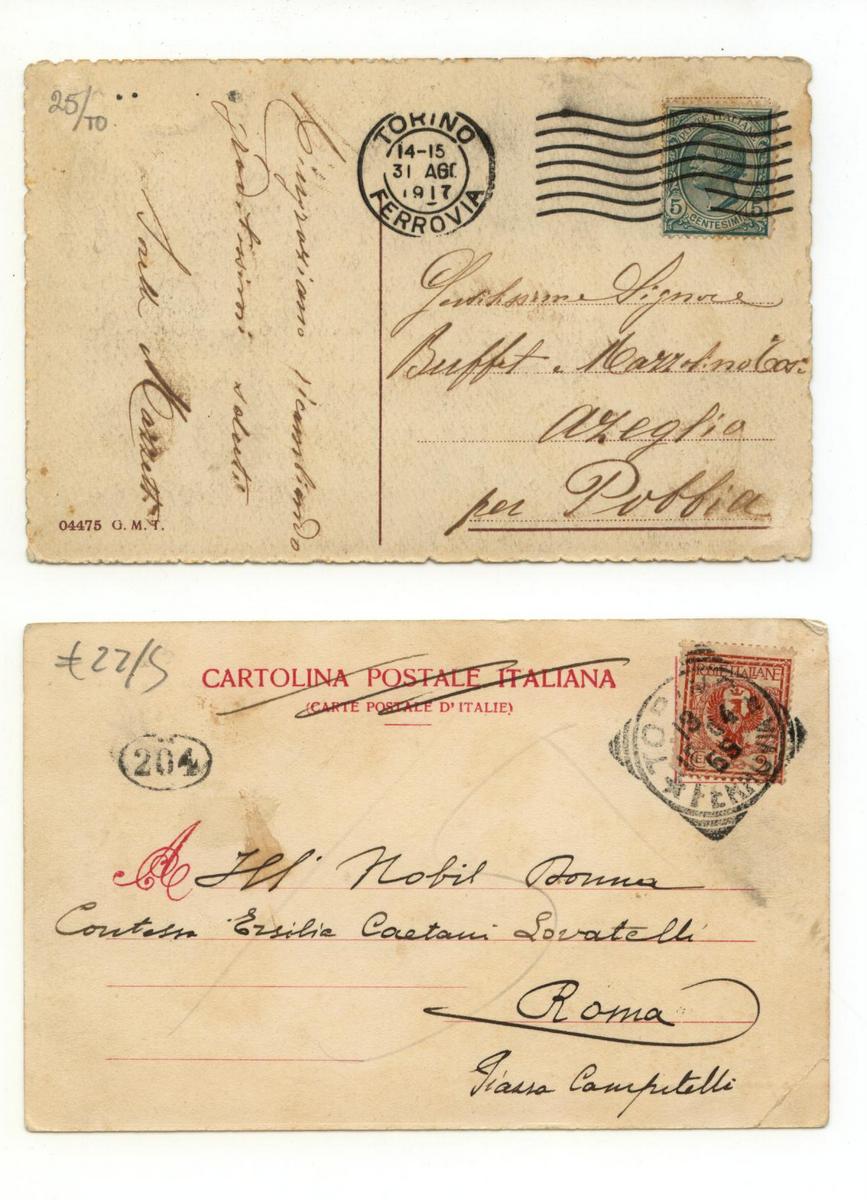 25/TO
Ringraziano ricambiando
graditissimi saluti
Mazzetti
04475 G. M. T.
TORINO
14-15
31 AGO
1917
FERROVIA
POSTE ITALIANE
5 CENTESIMI 5
Gentilissime Signore
Buffet e Mazzolino
Azeglio
per Pobbia
22/5
CARTOLINA POSTALE ITALIANA
(CARTE POSTALE D'ITALIE)
204
POSTE ITALIANE
TORINO
13
FERROVIA
A Ill' Nobil Donna
Contessa Ersilia Caetani Lovatelli
Roma
Piazza Campitelli